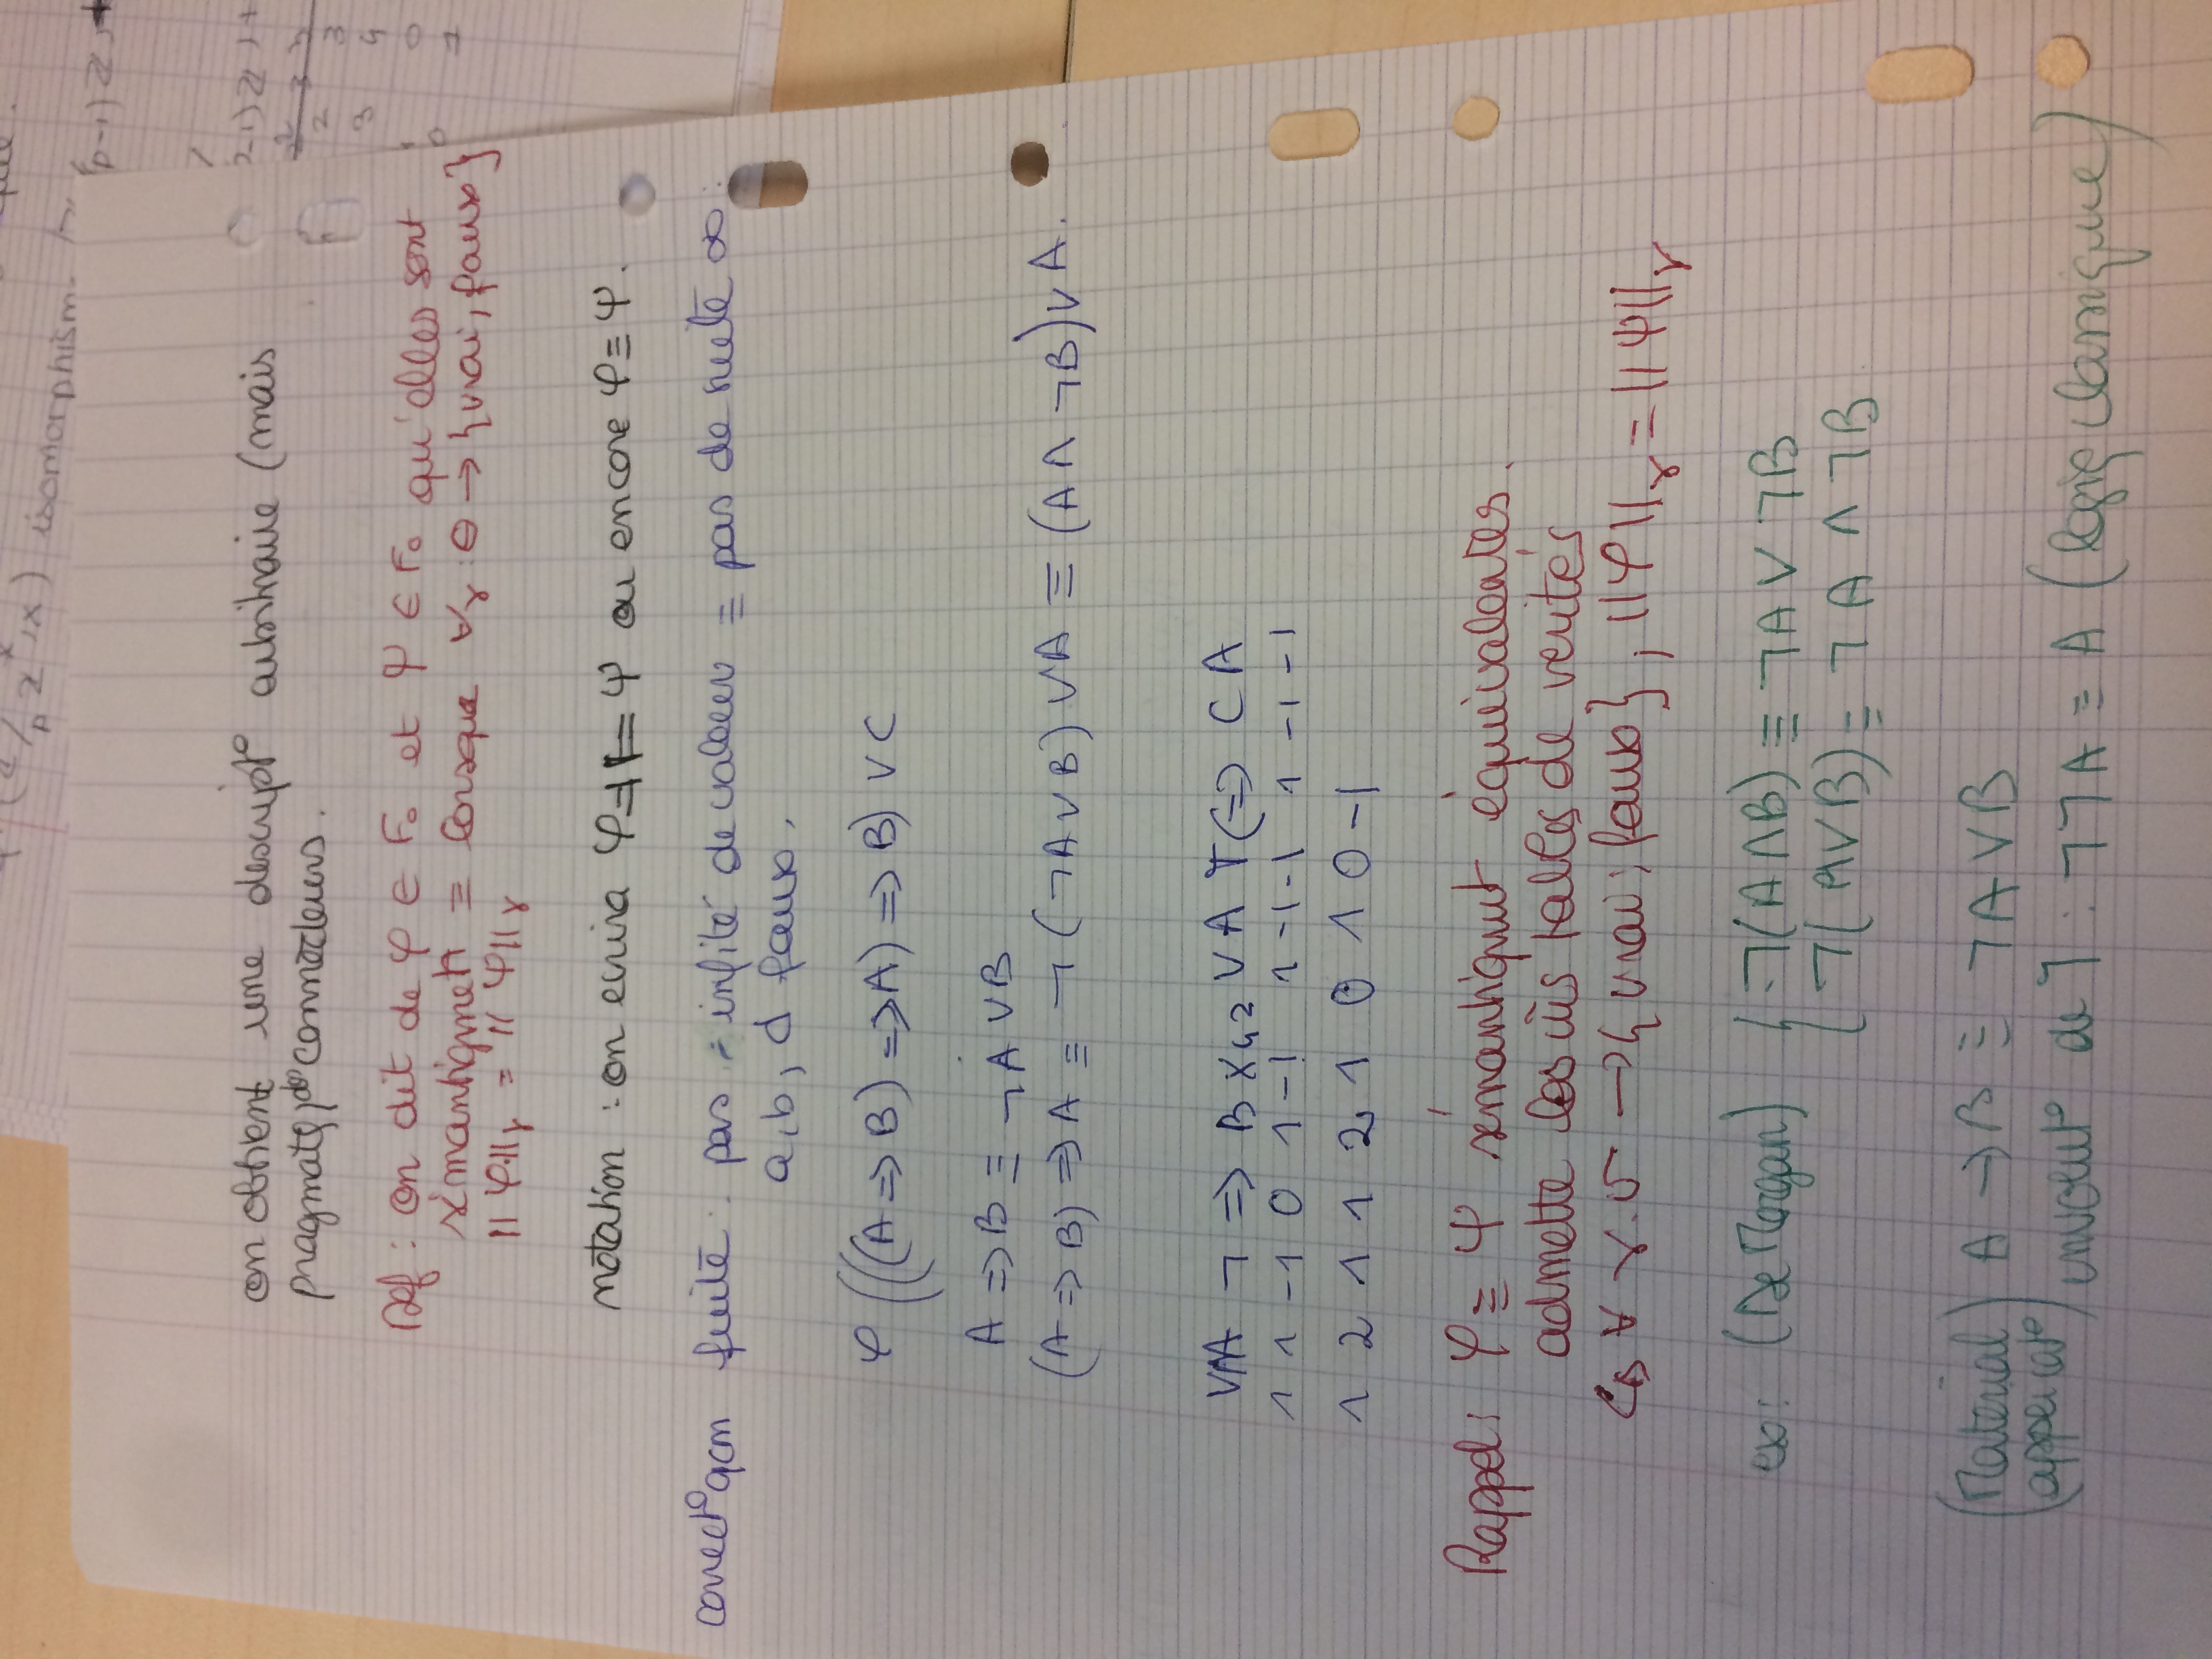 (Z/pZ^x, x) isomorphism
(p-1)Z, +
-1)Z, +
2 3
3 4
0
1
on obtient une descript° arbitraire (mais
pragmatq, de connecteurs.
Def : on dit de φ ∈ F₀ et Ψ ∈ F₀ qu'elles sont
sémantiqmet ≡ lorsque ∀γ : Θ → {vrai, faux}
||φ||γ = ||Ψ||γ
notation : on ecrira φ ⫤⊨ Ψ ou encore φ ≡ Ψ.
correct° qcm suite : pas infité de valeur ≡ pas de suite ∞ :
a, b, d faux.
φ (((A => B) => A) => B) ∨ C
A => B ≡ ¬A ∨ B
(A => B) => A ≡ ¬(¬A ∨ B) ∨ A ≡ (A ∧ ¬B) ∨ A.
¬ => B X42 ∨ A T <=> C A
1 1 -1 0 1 -1 1 -1 -1 1 -1 -1
1 2 1 1 2 1 0 1 0 -1
Rappel : φ ≡ Ψ sémantiqmt équivalentes.
admette les tables de verités
∀ γ. σ → {vrai ; faux}, ||φ||γ = ||Ψ||γ
ex : (De Morgan) { ¬(A ∧ B) ≡ ¬A ∨ ¬B
¬(A ∨ B) ≡ ¬A ∧ ¬B
(Material A → B ≡ ¬A ∨ B
involut° de ¬ : ¬¬A ≡ A (logiq classique)